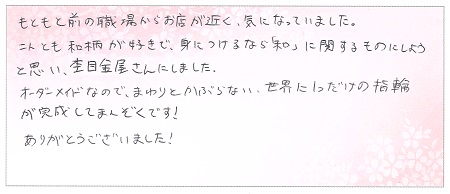 もともと前の職場からお店が近く、気になっていました。
二人とも和柄が好きで、身につけるなら「和」に関するものにしよう
と思い、杢目金屋さんにしました。
オーダーメイドなので、まわりとかぶらない、世界に1つだけの指輪
が完成してまんぞくです!
ありがとうございました!